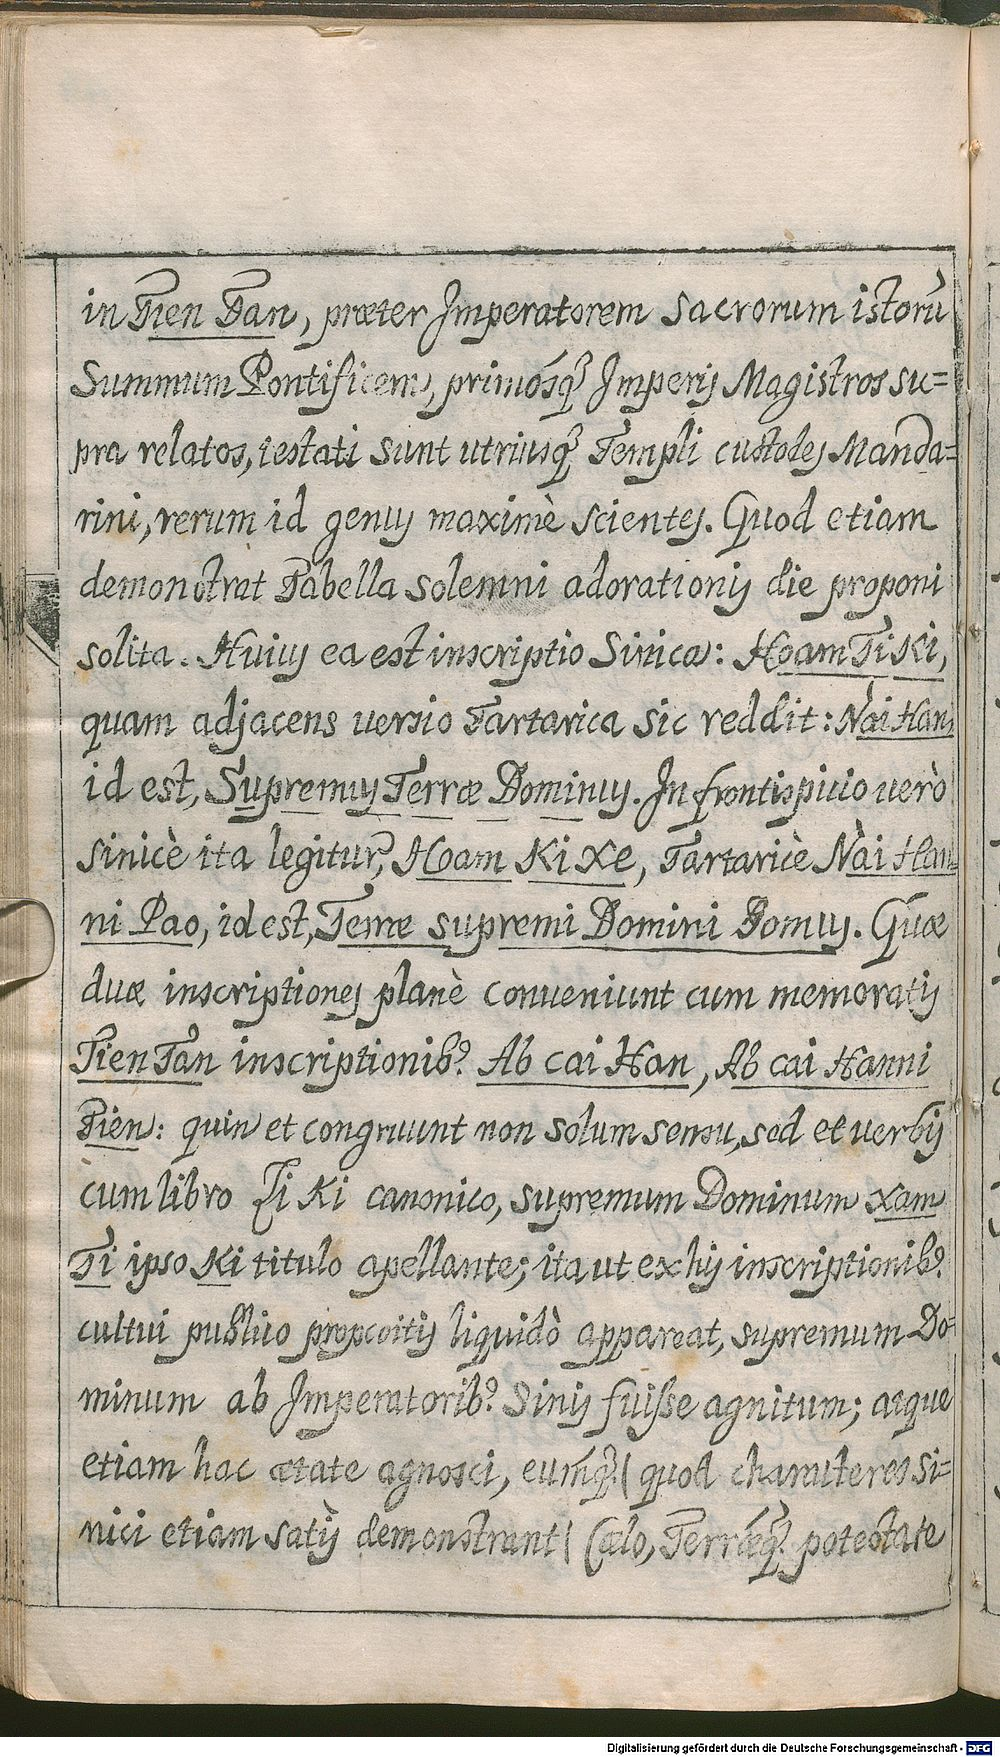 in Tien Tan, præter Imperatorem sacrorum istorū
Summum Pontificem, primósq́ꝫ Imperij Magistros su=
pra relatos, testati sunt utriusq́ꝫ Templi custodes Manda=
rini, rerum id genus maximè scientes. Quod etiam
demonstrat Tabella solemni adorationis die proponi
solita. Huius ea est inscriptio Sinica: Hoam Ti Ki,
quam adjacens versio Tartarica sic reddit: Nài Han,
id est, Supremus Terræ Dominus. In frontispicio verò
sinicè ita legitur, Hoam Ki Xe, Tartaricè Nài Han
ni Pao, id est, Terræ supremi Domini Domus. Quæ
duæ inscriptiones planè conveniunt cum memoratis
Tien Tan inscriptionibꝰ. Ab cai Han, Ab cai Hanni
Tien: quin et congruunt non solum sensu, sed et verbis
cum libro Li Ki canonico, supremum Dominum Xam
Ti ipso Ki titulo apellante; ita ut ex his inscriptionibꝰ.
cultui publico propositis liquidò appareat, supremum Do=
minum ab Imperatoribꝰ. Sinis fuisse agnitum; atque
etiam hac ætate agnosci, eumq́ꝫ ( quod characteres Si=
nici etiam satis demonstrant ( Cælo, Terræq́ꝫ. potestate
Digitalisierung gefördert durch die Deutsche Forschungsgemeinschaft - DFG